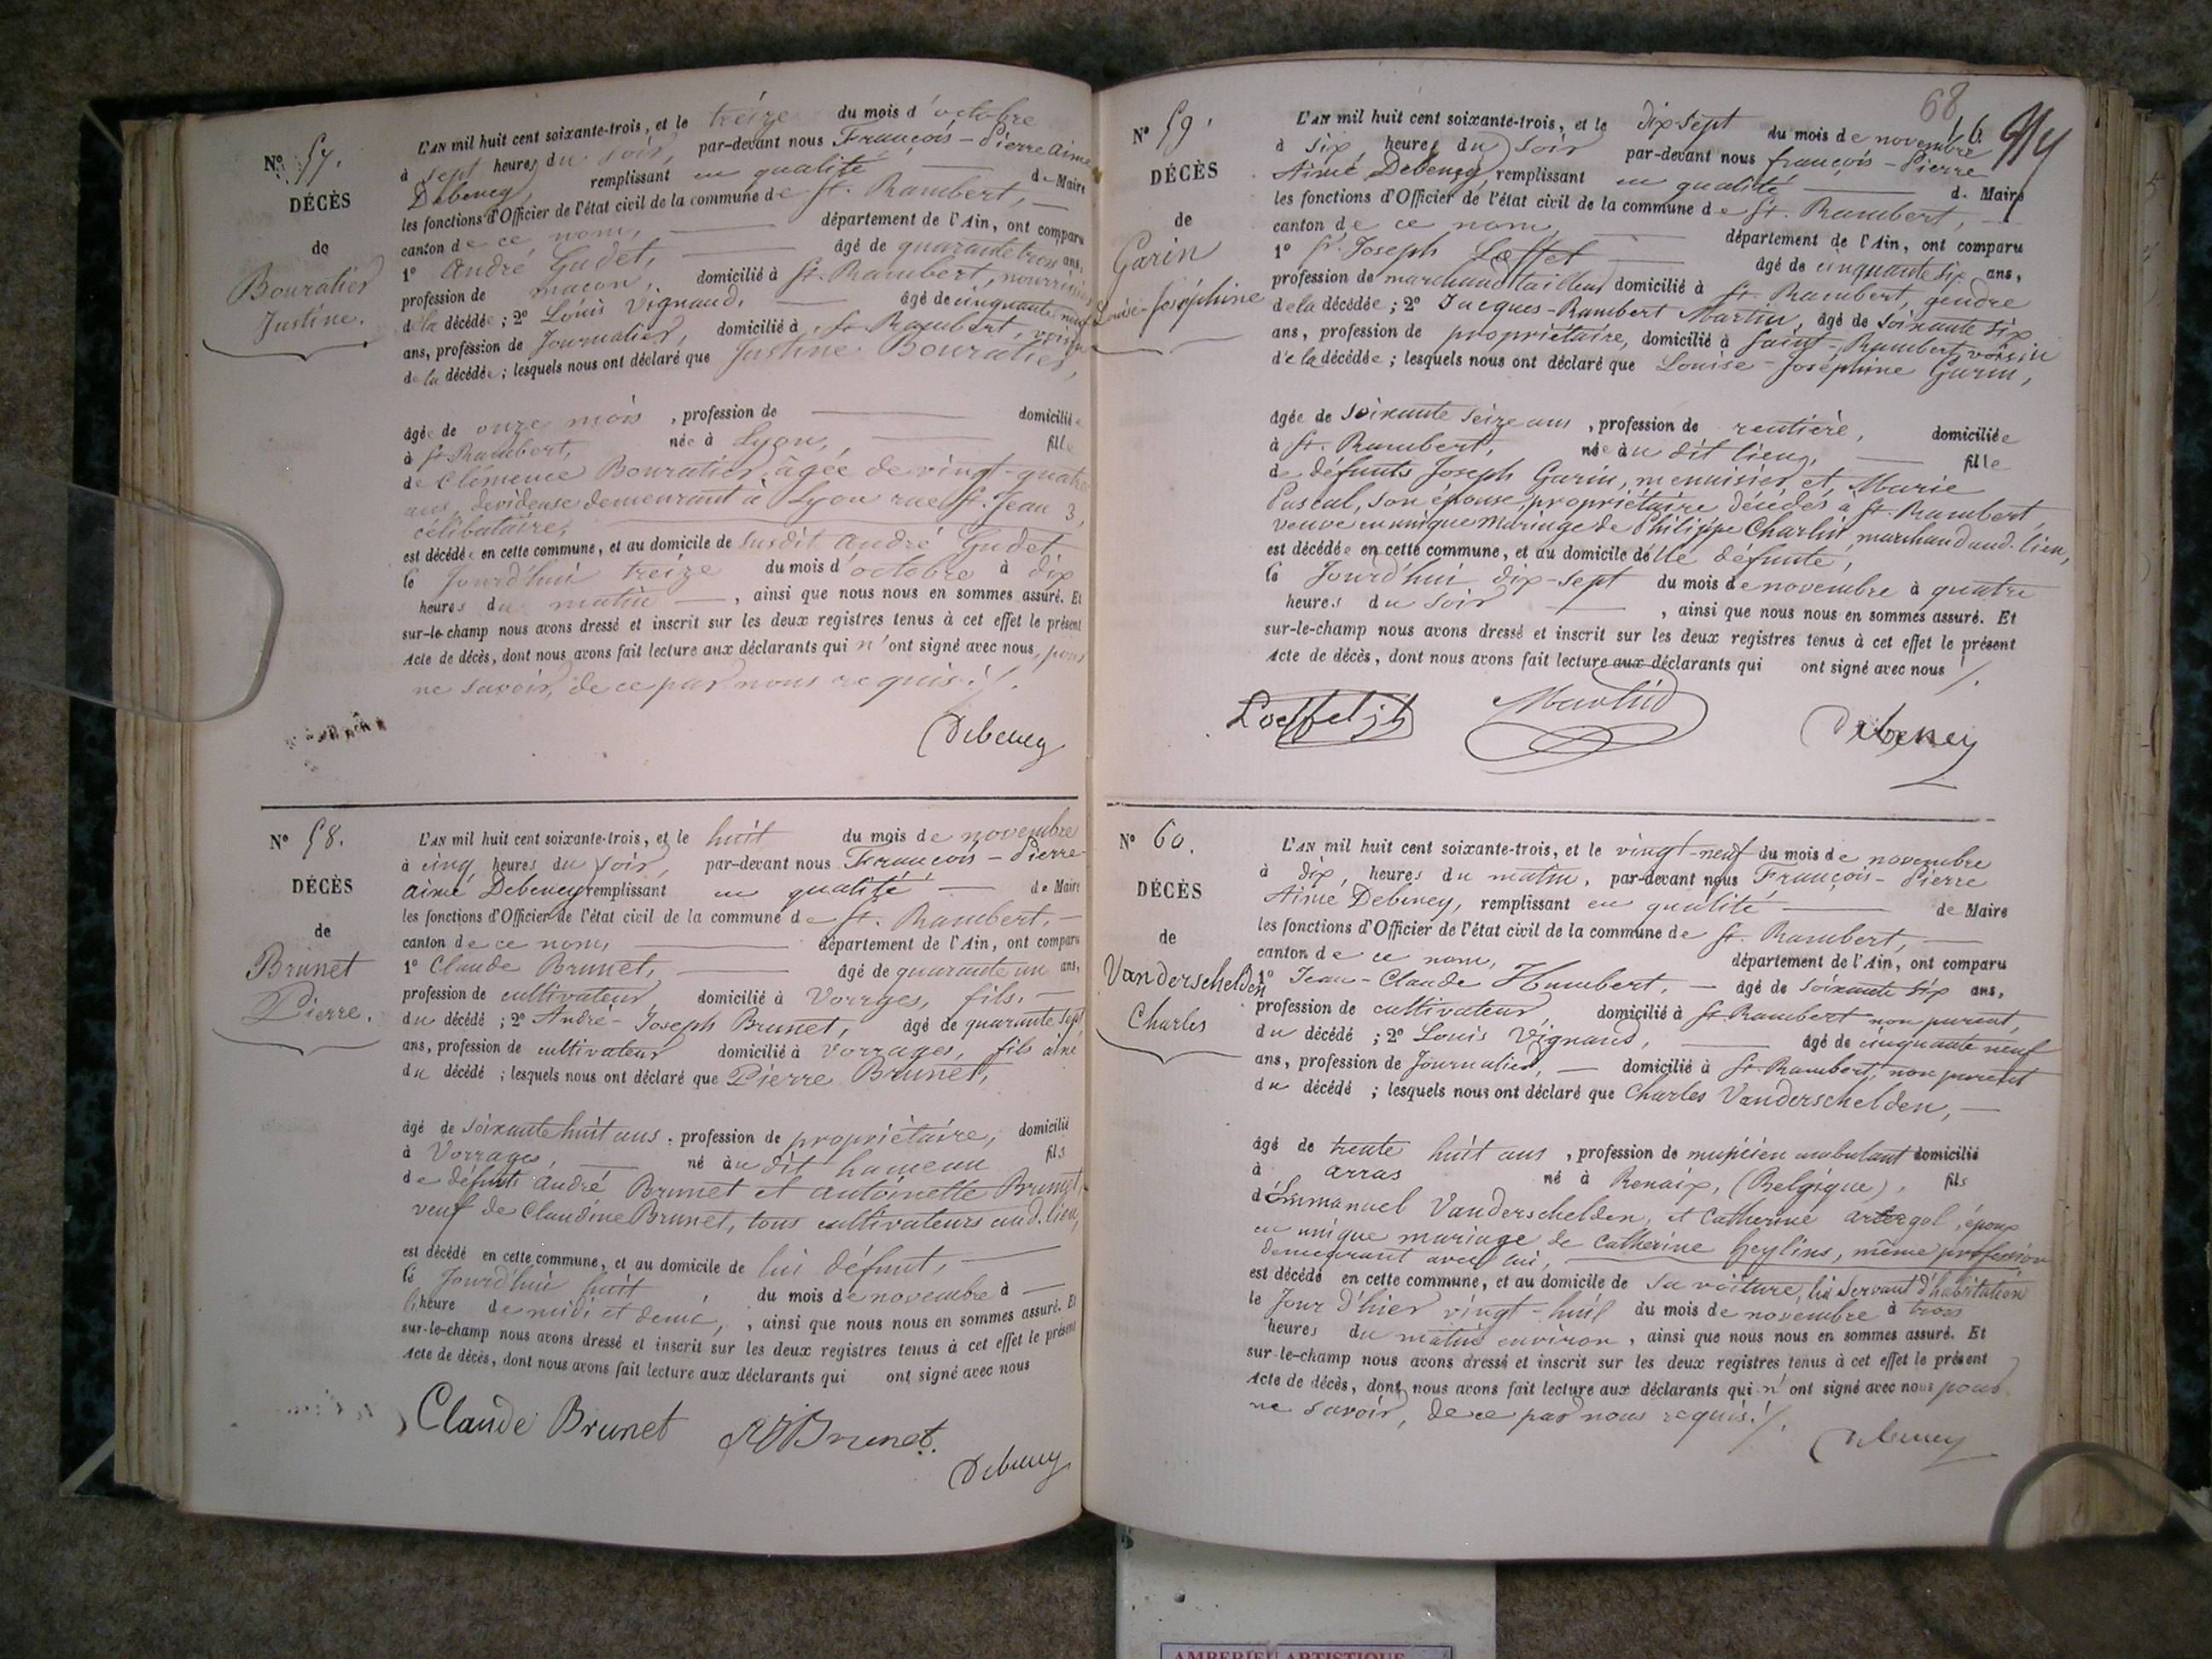 N° 57.
DÉCÈS
de
Bouratier
Justine.
L'AN mil huit cent soixante-trois, et le treize du mois d'octobre
à sept heures du soir, par-devant nous François-Pierre Aimé
Debeney, remplissant en qualité de Maire
les fonctions d'Officier de l'état civil de la commune de St. Rambert,
canton de ce nom, département de l'Ain, ont comparu
1° André Gudet, âgé de quarante trois ans,
profession de maçon, domicilié à St. Rambert, nourricier
de la décédée; 2° Louis Vignaud, âgé de cinquante neuf
ans, profession de Journalier, domicilié à St. Rambert, voisin
de la décédée; lesquels nous ont déclaré que Justine Bouratier,
âgée de onze mois, profession de domiciliée
à St. Rambert, née à Lyon, fille
de Clémence Bouratier, âgée de vingt-quatre
ans, devideuse demeurant à Lyon rue St. Jean 3,
célibataire,
est décédée en cette commune, et au domicile de susdit André Gudet,
le Jourd'hui treize du mois d'octobre à dix
heures du matin, ainsi que nous nous en sommes assuré. Et
sur-le-champ nous avons dressé et inscrit sur les deux registres tenus à cet effet le présent
Acte de décès, dont nous avons fait lecture aux déclarants qui n'ont signé avec nous, pour
ne savoir, de ce par nous requis./.
Debeney
N° 58.
DÉCÈS
de
Brunet
Pierre.
L'AN mil huit cent soixante-trois, et le huit du mois de novembre
à cinq heures du soir, par-devant nous François-Pierre-
Aimé Debeney remplissant en qualité de Maire
les fonctions d'Officier de l'état civil de la commune de St. Rambert,
canton de ce nom, département de l'Ain, ont comparu
1° Claude Brunet, âgé de quarante un ans,
profession de cultivateur, domicilié à Vorrages, fils,
du décédé; 2° André-Joseph Brunet, âgé de quarante sept
ans, profession de cultivateur domicilié à Vorrages, fils aîné
du décédé; lesquels nous ont déclaré que Pierre Brunet,
âgé de soixante huit ans, profession de propriétaire, domicilié
à Vorrages, né au dit hameau fils
de défunts André Brunet et Antoinette Brunet,
veuf de Claudine Brunet, tous cultivateurs aud. lieu,
est décédé en cette commune, et au domicile de lui défunt,
le Jourd'hui huit du mois de novembre à
l'heure de midi et demi, ainsi que nous nous en sommes assuré. Et
sur-le-champ nous avons dressé et inscrit sur les deux registres tenus à cet effet le présent
Acte de décès, dont nous avons fait lecture aux déclarants qui ont signé avec nous
Claude Brunet AJ Brunet.
Debeney
68
N° 59.
DÉCÈS
de
Garin
Louise-Joséphine
L'AN mil huit cent soixante-trois, et le dix sept du mois de novembre
à six heures du soir par-devant nous françois-Pierre
Aimé Debeney, remplissant en qualité de Maire
les fonctions d'Officier de l'état civil de la commune de St. Rambert,
canton de ce nom, département de l'Ain, ont comparu
1° Joseph Lœffel âgé de cinquante six ans,
profession de marchand tailleur domicilié à St. Rambert, gendre
de la décédée; 2° Jacques-Rambert Martin, âgé de soixante six
ans, profession de propriétaire, domicilié à Saint-Rambert, voisin
de la décédée; lesquels nous ont déclaré que Louise-Joséphine Garin,
âgée de soixante seize ans, profession de rentière, domiciliée
à St. Rambert, née au dit lieu, fille
de défunts Joseph Garin, menuisier, et Marie
Pascal, son épouse, propriétaire décédés à St. Rambert,
veuve en unique mariage de Philippe Charlin, marchand aud. lieu,
est décédée en cette commune, et au domicile d'elle défunte,
le Jourd'hui dix-sept du mois de novembre à quatre
heures du soir, ainsi que nous nous en sommes assuré. Et
sur-le-champ nous avons dressé et inscrit sur les deux registres tenus à cet effet le présent
Acte de décès, dont nous avons fait lecture aux déclarants qui ont signé avec nous /.
Loeffel jh Martin Debeney
N° 60.
DÉCÈS
de
Vanderschelden
Charles
L'AN mil huit cent soixante-trois, et le vingt-neuf du mois de novembre
à dix heures du matin, par-devant nous François-Pierre
Aimé Debeney, remplissant en qualité de Maire
les fonctions d'Officier de l'état civil de la commune de St. Rambert,
canton de ce nom, département de l'Ain, ont comparu
1° Jean-Claude Humbert, âgé de soixante six ans,
profession de cultivateur, domicilié à St. Rambert non parent,
du décédé; 2° Louis Vignaud, âgé de cinquante neuf
ans, profession de Journalier, domicilié à St. Rambert, non parent
du décédé; lesquels nous ont déclaré que Charles Vanderschelden,
âgé de trente huit ans, profession de musicien ambulant domicilié
à arras né à Renaix, (Belgique), fils
d'Emmanuel Vanderschelden, et Catherine artergal, époux
en unique mariage de Catherine heylins, même profession
demeurant avec lui,
est décédé en cette commune, et au domicile de sa voiture, lui servant d'habitation
le Jour d'hier vingt-huit du mois de novembre à trois
heures du matin environ, ainsi que nous nous en sommes assuré. Et
sur-le-champ nous avons dressé et inscrit sur les deux registres tenus à cet effet le présent
Acte de décès, dont nous avons fait lecture aux déclarants qui n'ont signé avec nous pour
ne savoir, de ce par nous requis./.
Debeney
AMBERIEU ARTISTIQUE